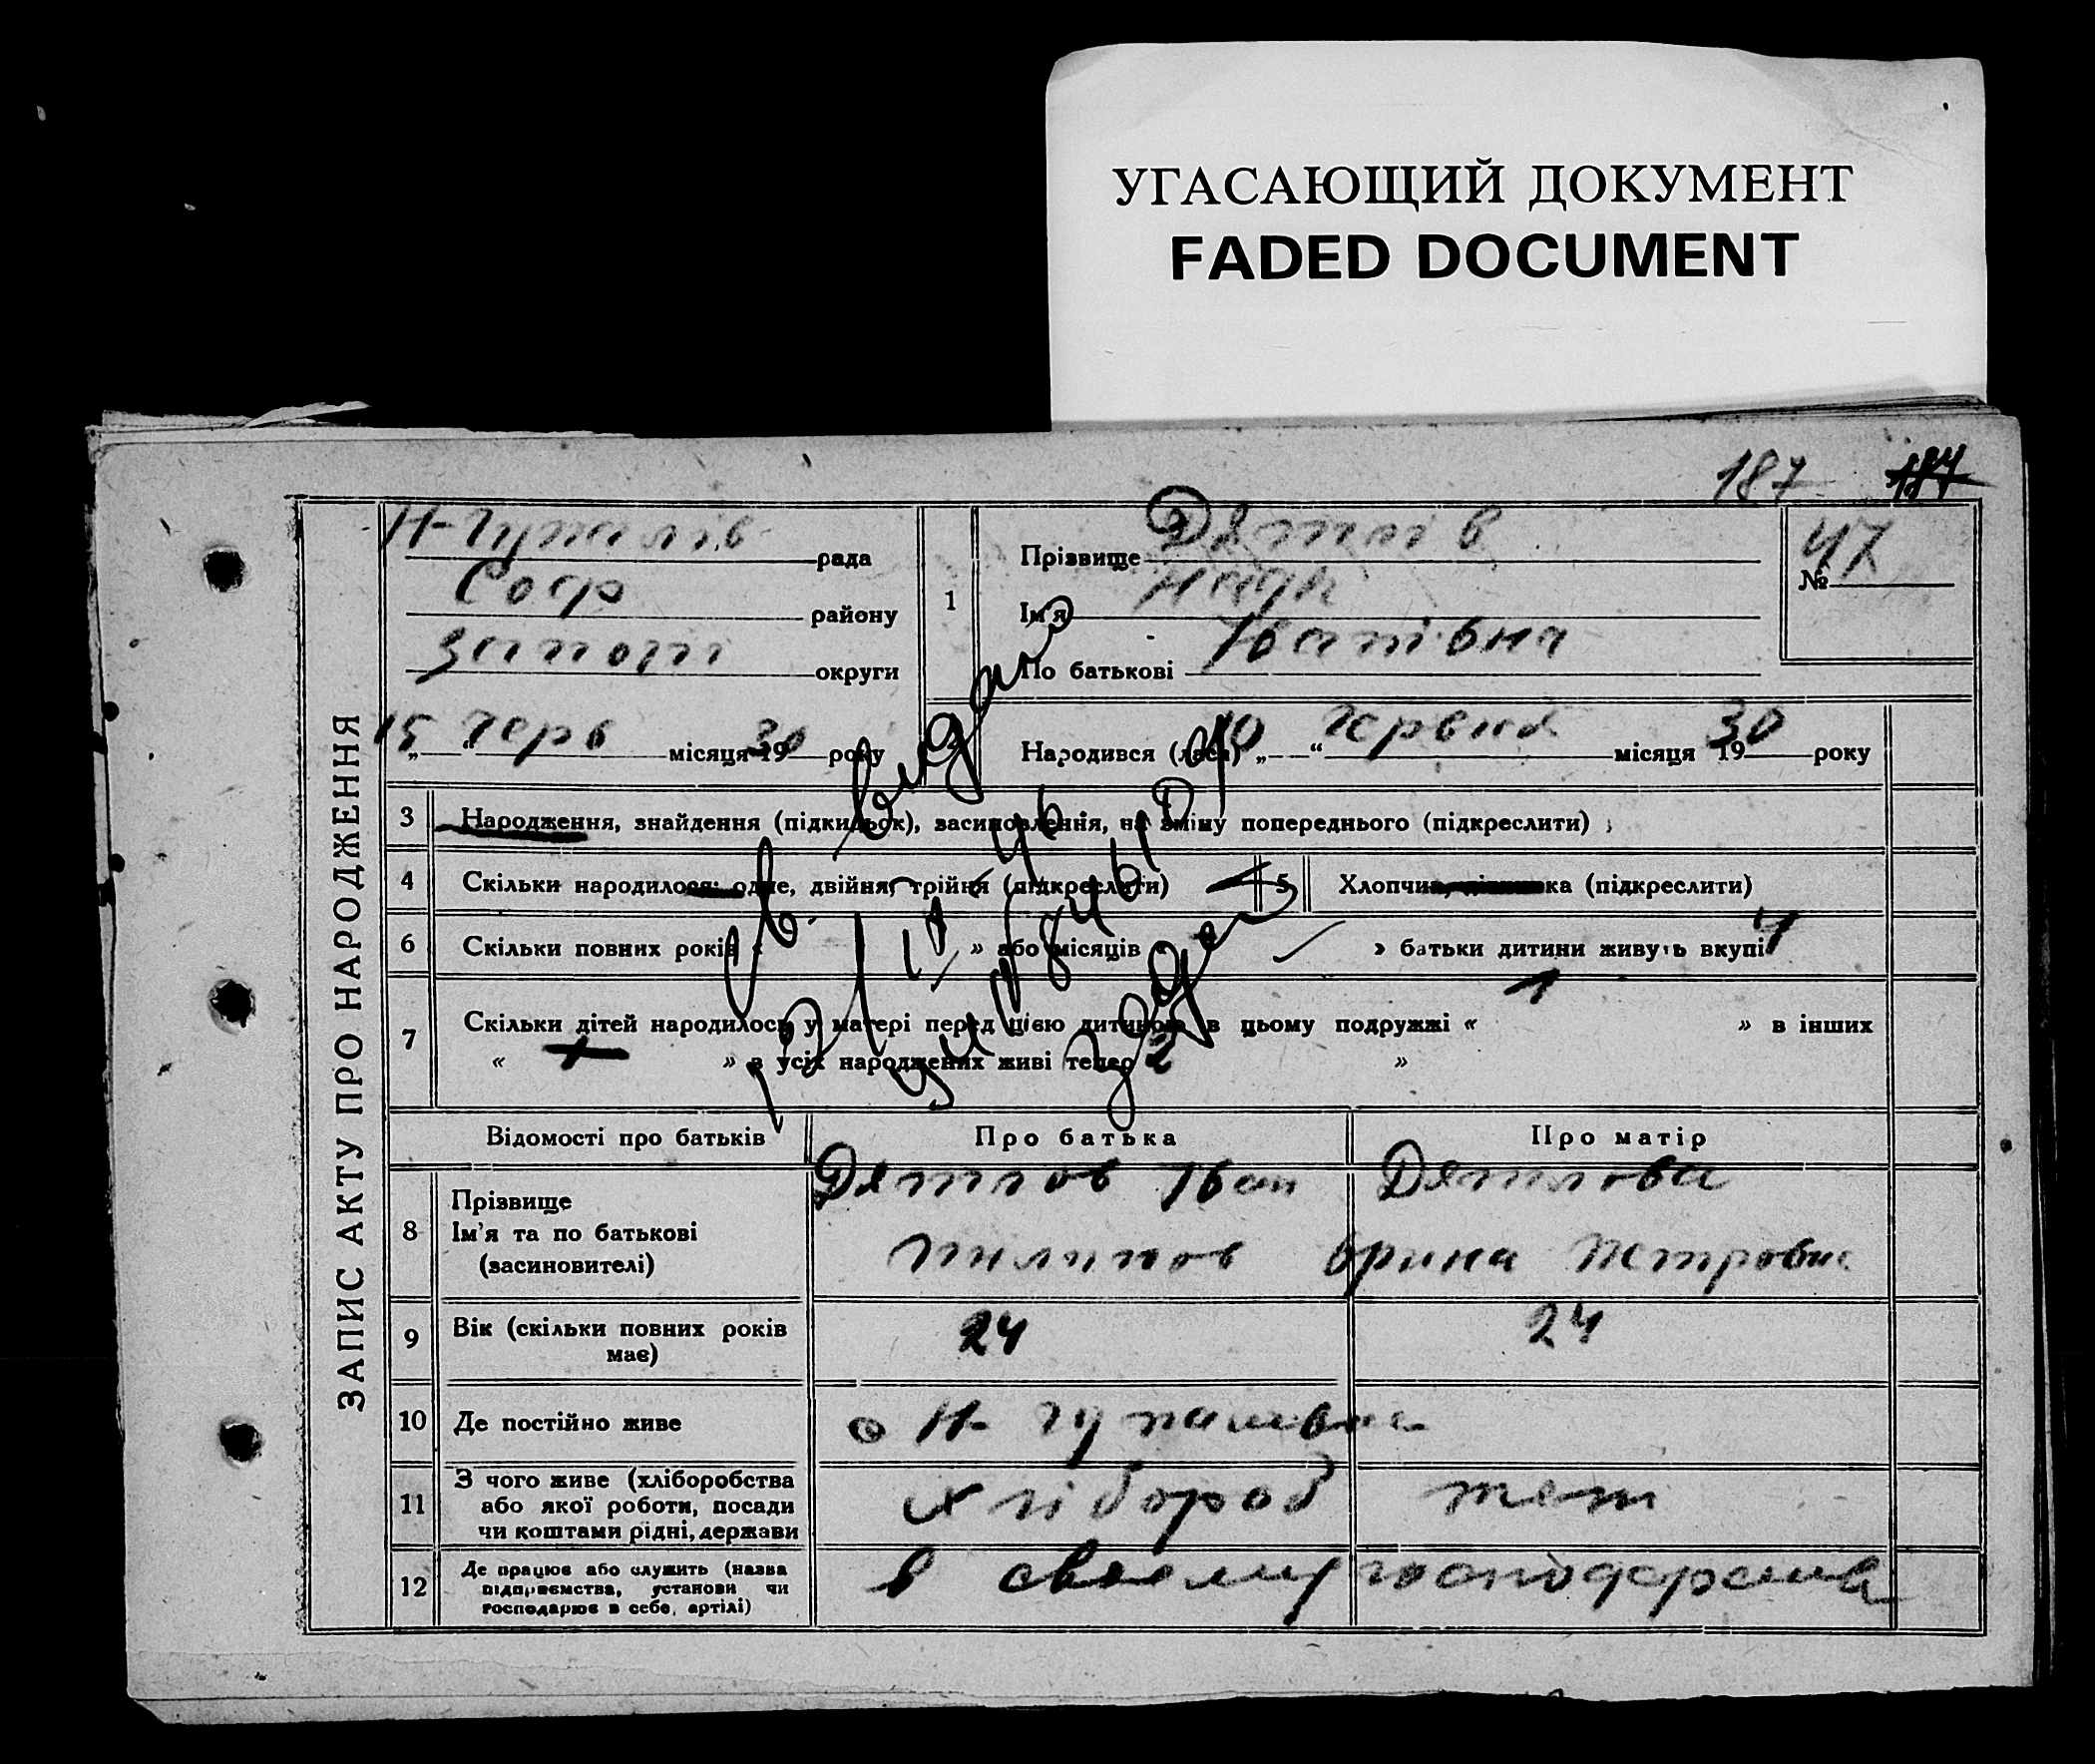 УГАСАЮЩИЙ ДОКУМЕНТ
FADED DOCUMENT
187 187
ЗАПИС АКТУ ПРО НАРОДЖЕННЯ
рада
Соф району
Запоріз округи
15 „ “ черв місяця 1930 року
1
Прізвище Дятлів
Ім'я Надя
По батькові Іванівна
№ 47
Народився (лася) 10 „ “ червня місяця 1930 року
3 Народження, знайдення (підкидьок), засиновлення, на зміну попереднього (підкреслити)
4 Скільки народилося: одне, двійня, трійня (підкреслити) 5 Хлопчик, дівчинка (підкреслити)
6 Скільки повних років « » або місяців » батьки дитини живуть вкупі 4
7 Скільки дітей народилось у матері перед цією дитиною в цьому подружжі « 1 » в інших
« » з усіх народжених живі тепер 2 »
Відомості про батьків Про батька Про матір
8 Прізвище
Ім'я та по батькові
(засиновителі)
Дятлов Іван
Пилипов
Дятлова
Орина Петровна
9 Вік (скільки повних років
має)
24 24
10 Де постійно живе
11 З чого живе (хліборобства
або якої роботи, посади
чи коштами рідні, держави
хлібороб
12 Де працює або служить (назва
підприємства, установи чи
господарює в себе, артілі)
в своєму